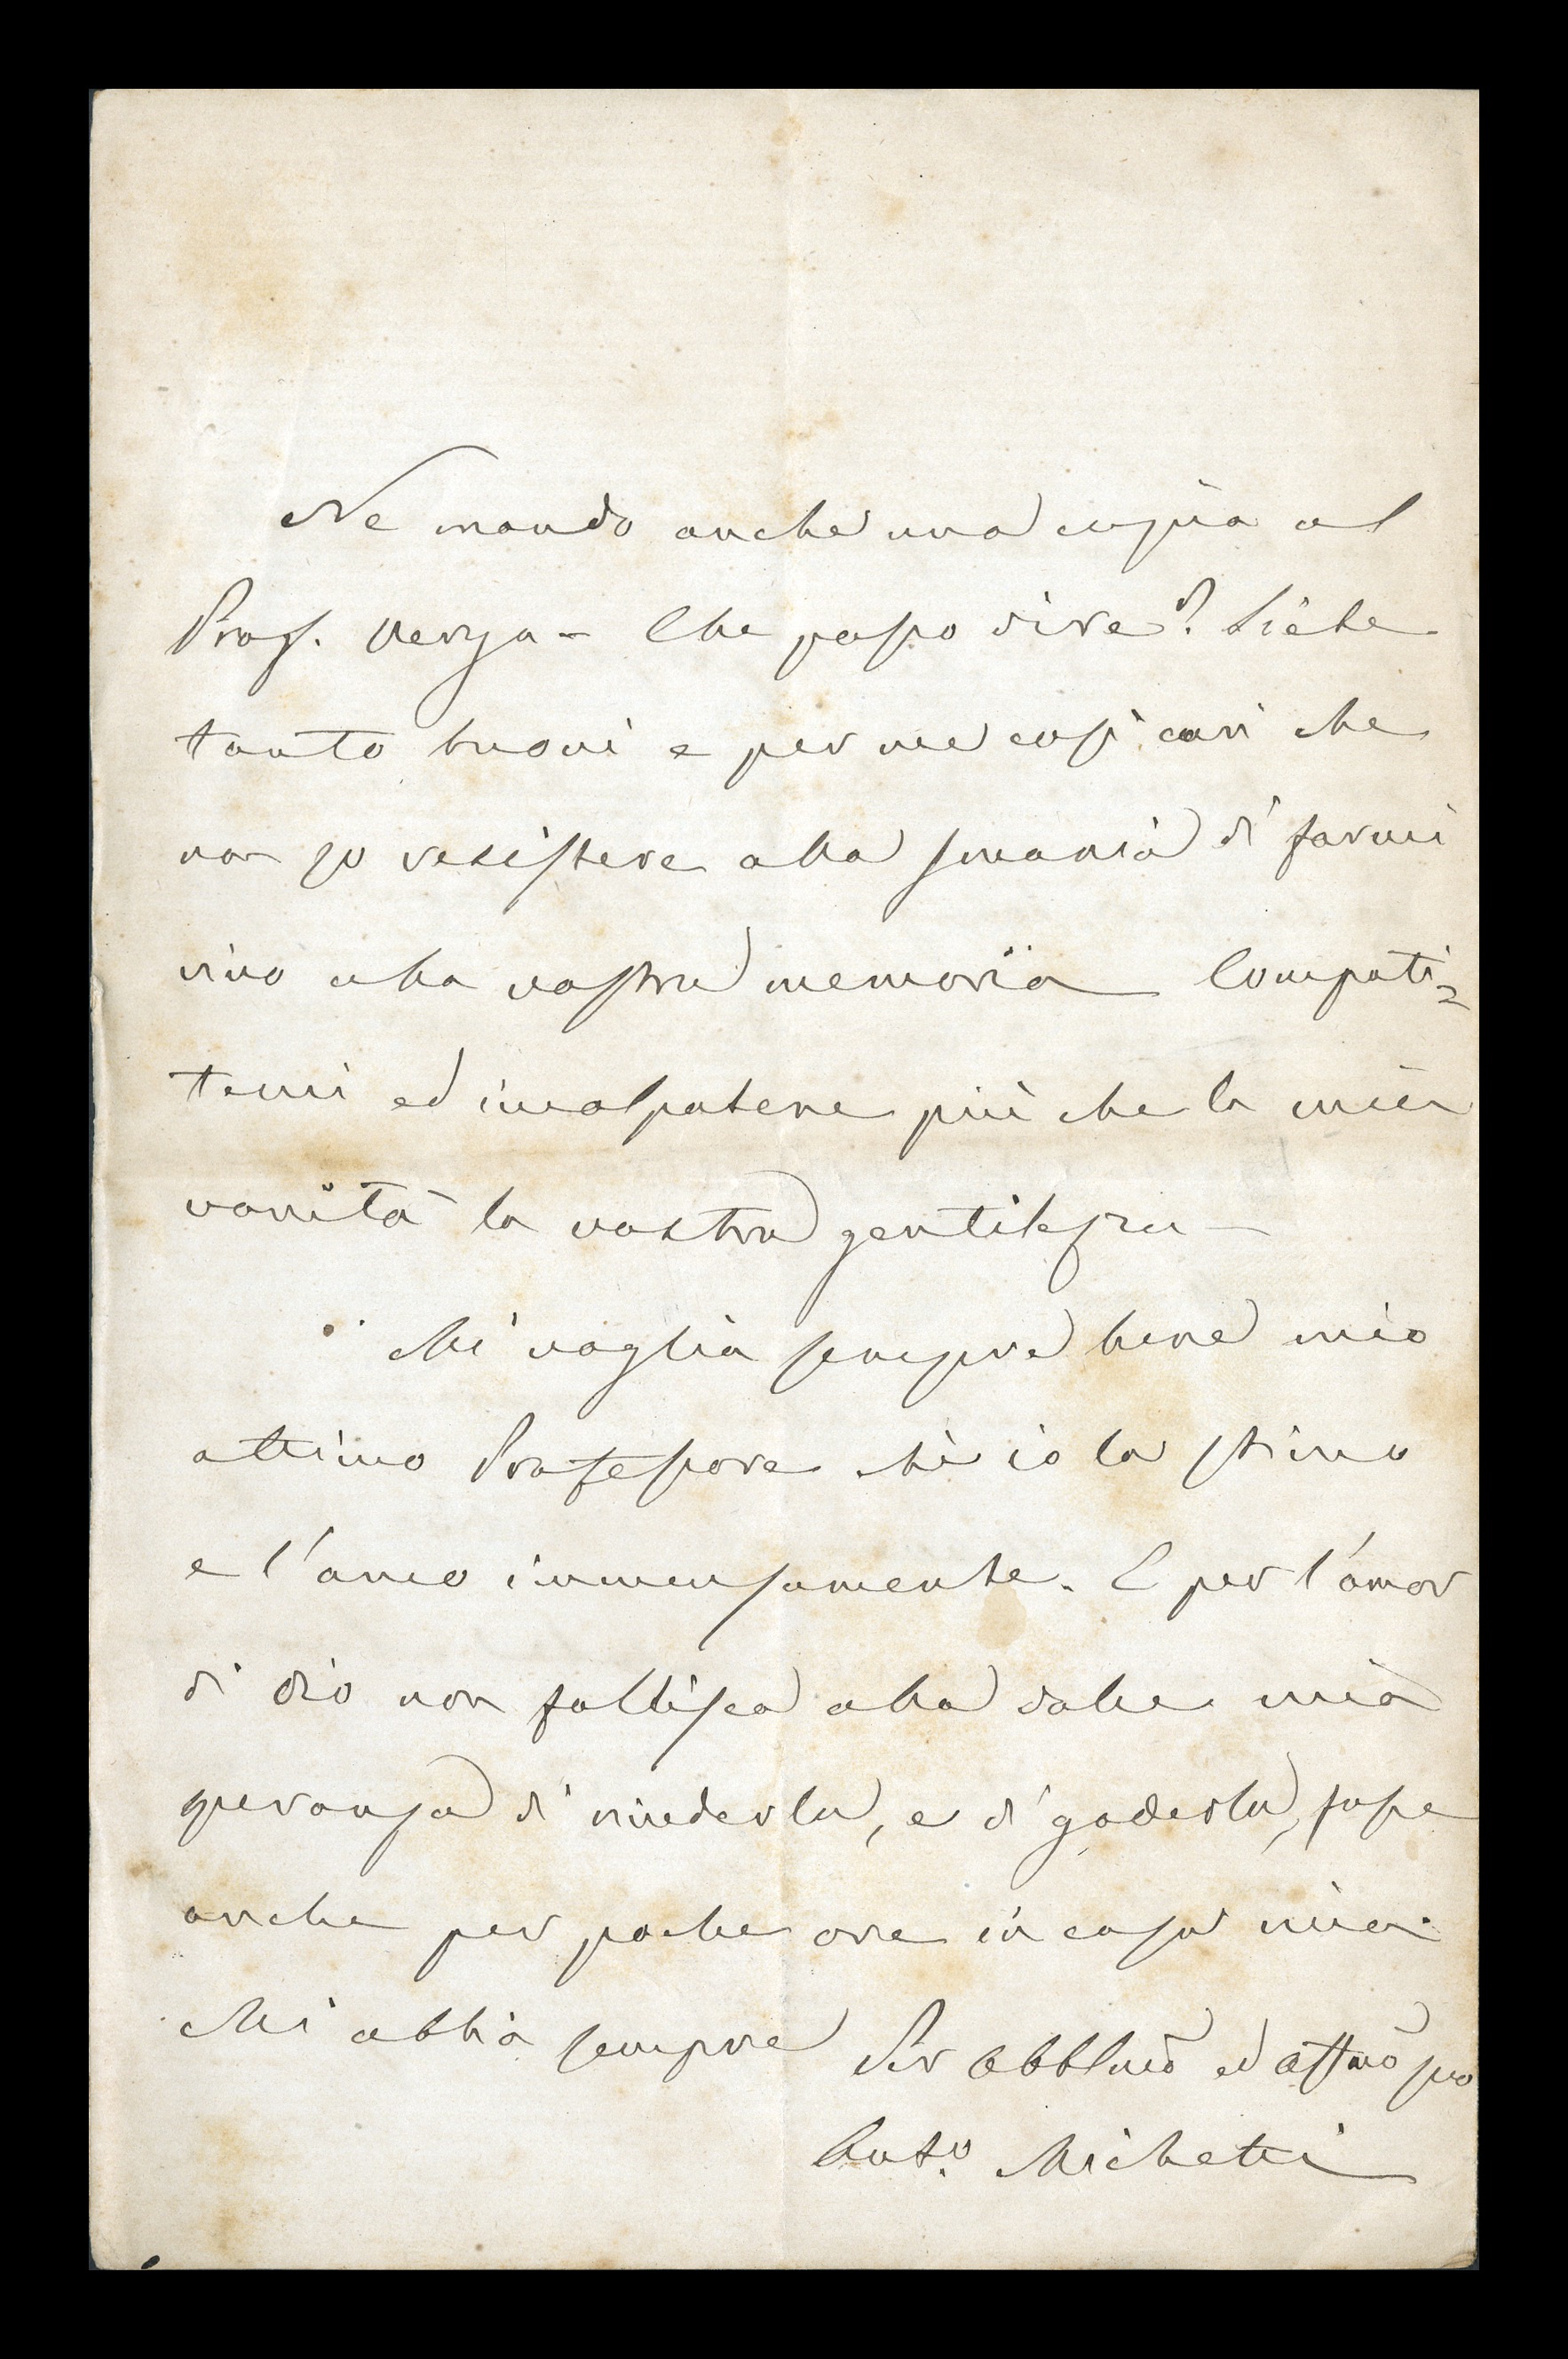 Ne mando anche una copia al
Prof. Verga – Che posso dire? Siete
tanto buoni e per me così cari che
non so resistere alla smania di farmi
vivo alla vostra memoria Compati=
temi ed incolpatene più che la mia
vanità la vostra gentilezza –
Mi voglia sempre bene mio
ottimo Professore chè io la stimo
e l'amo immensamente. E per l'amor
di Dio non fallisca alla dolce mia
speranza di rivederla, e di goderla, fosse
anche per poche ore in casa mia.
Mi abbia sempre Per obblmo ed affmo suo
Anto. Michetti